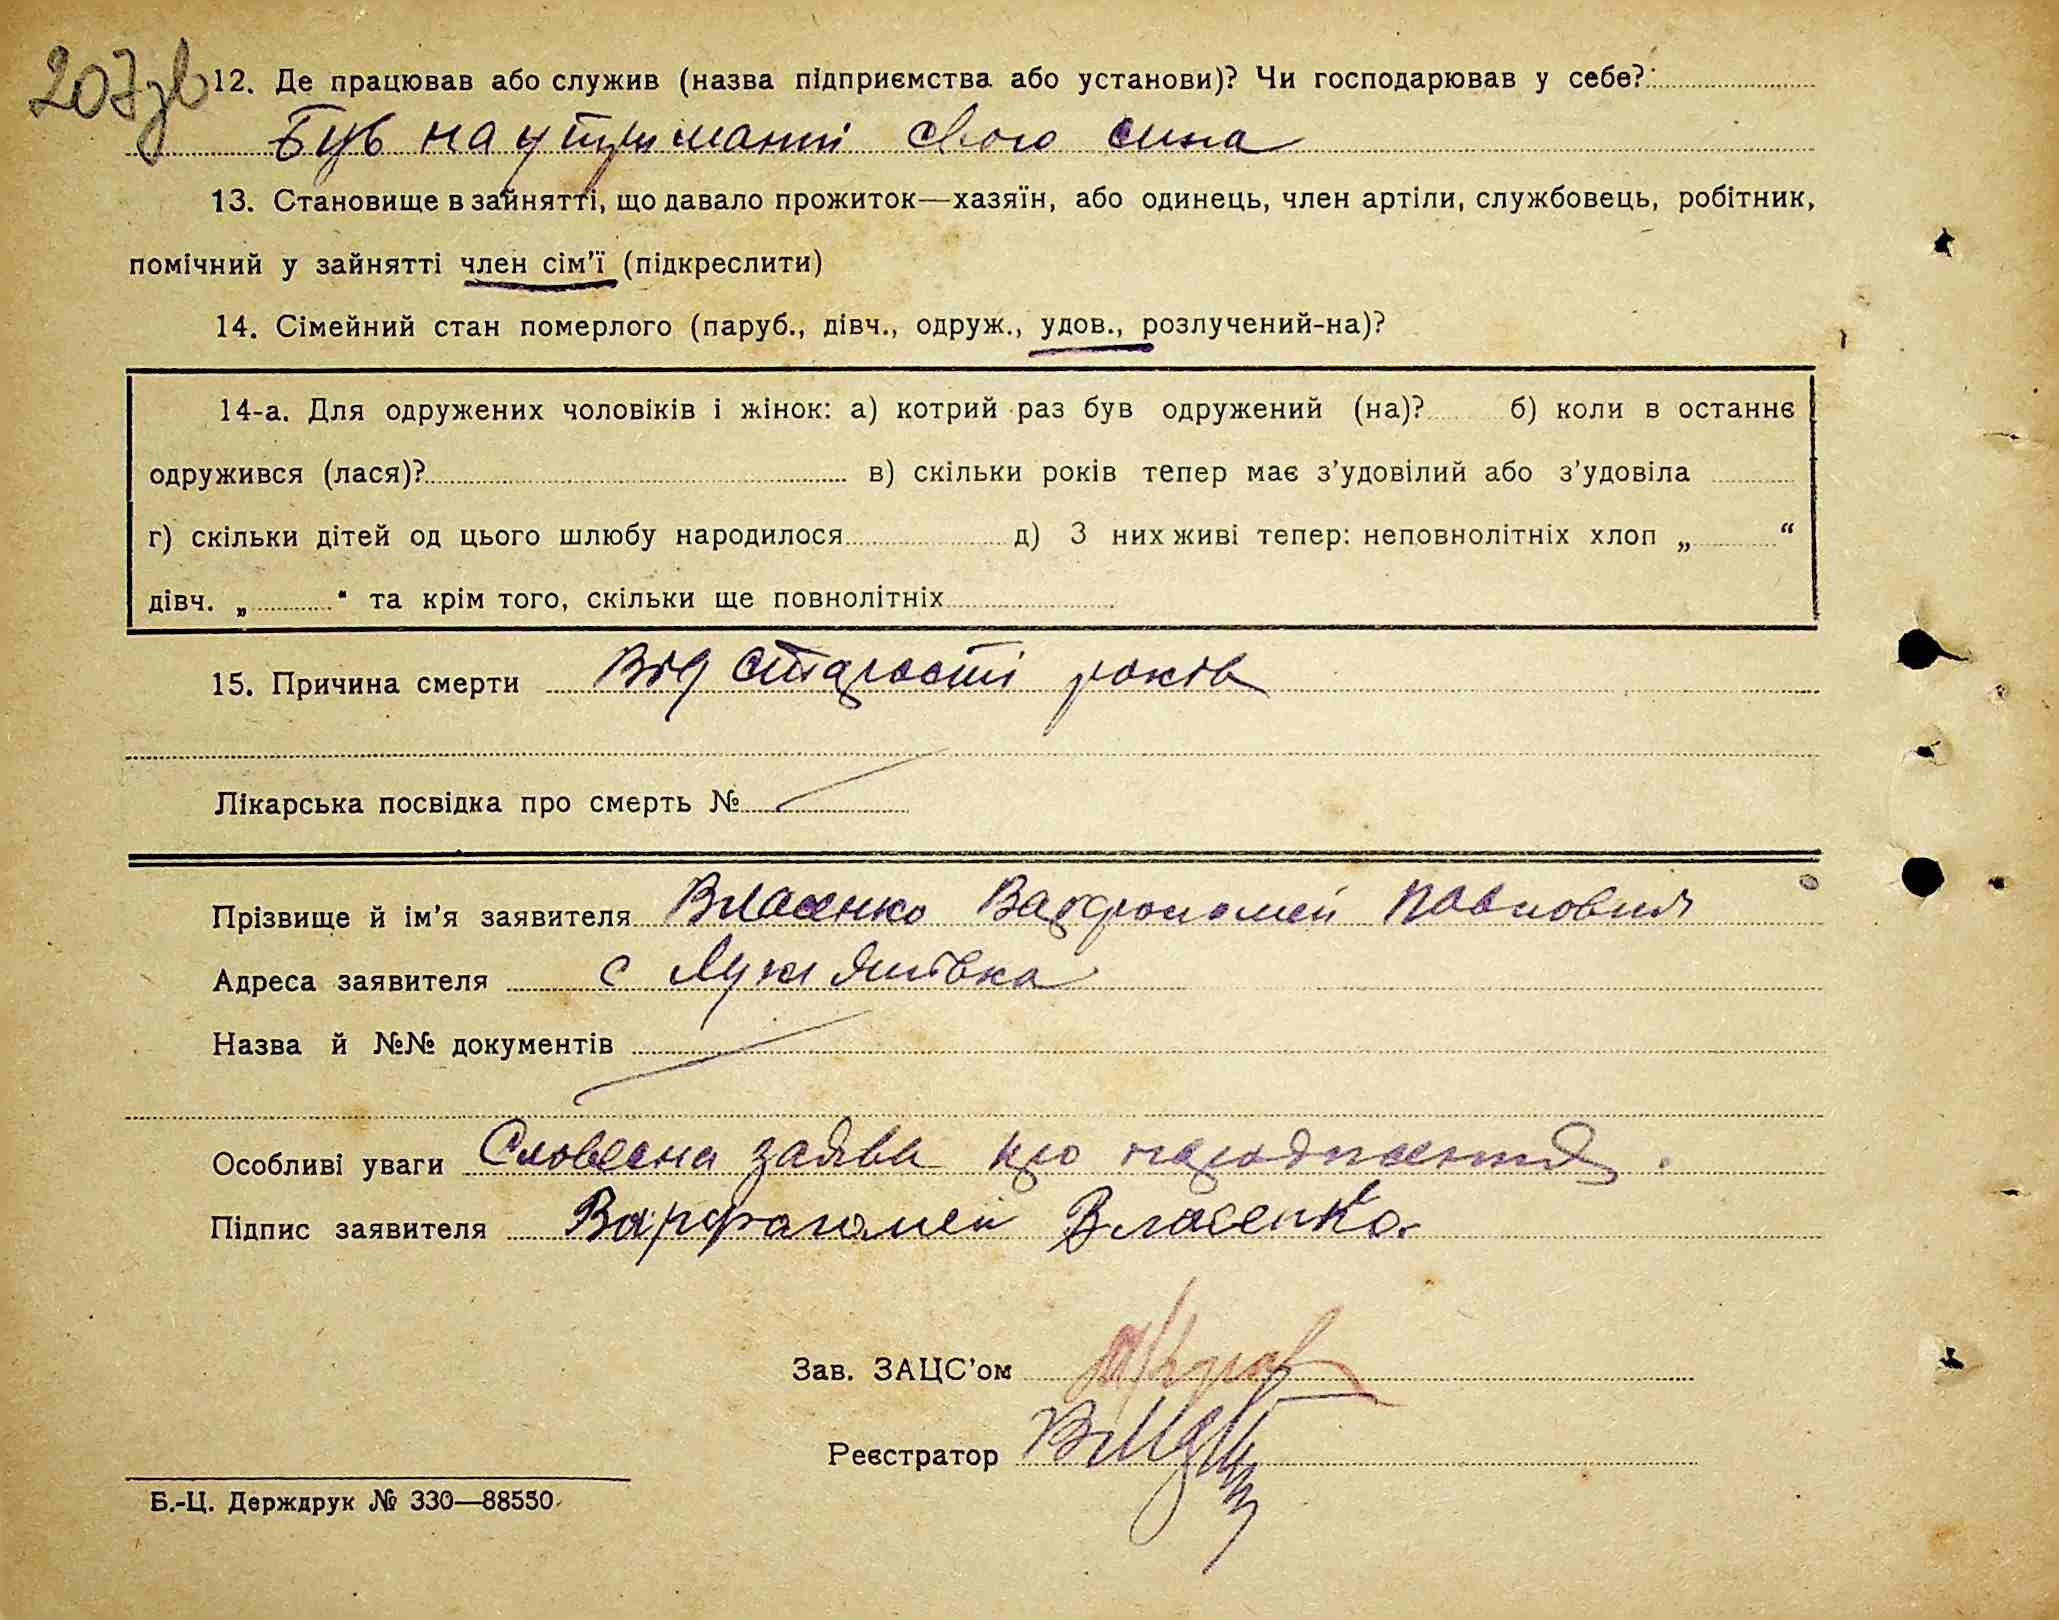 207зв
12. Де працював або служив (назва підприємства або установи)? Чи господарював у себе?
Був на утриманні свого сина
13. Становище в зайнятті, що давало прожиток—хазяїн, або одинець, член артіли, службовець, робітник,
помічний у зайнятті член сім'ї (підкреслити)
14. Сімейний стан померлого (паруб., дівч., одруж., удов., розлучений-на)?
14-а. Для одружених чоловіків і жінок: а) котрий раз був одружений (на)? б) коли в останнє
одружився (лася)? в) скільки років тепер має з'удовілий або з'удовіла
г) скільки дітей од цього шлюбу народилося д) З них живі тепер: неповнолітніх хлоп „ “
дівч. „ “ та крім того, скільки ще повнолітніх
15. Причина смерти Від старости років
Лікарська посвідка про смерть №
Прізвище й ім'я заявителя Власенко Варфоломей Павлович
Адреса заявителя с
Назва й №№ документів
Особливі уваги Словесна заява про
Підпис заявителя Варфаломей Власенко
Зав. ЗАЦС'ом
Реєстратор
Б.-Ц. Держдрук № 330—88550